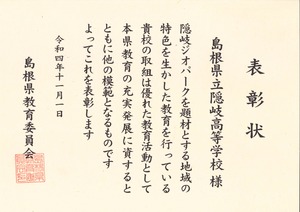 表彰状
島根県立隠岐高等学校 様
隠岐ジオパークを題材とする地域の
特色を生かした教育を行っている
貴校の取組は優れた教育活動として
本県教育の充実発展に資すると
ともに他の模範となるものです
よってこれを表彰します
令和四年十一月一日
島根県教育委員会